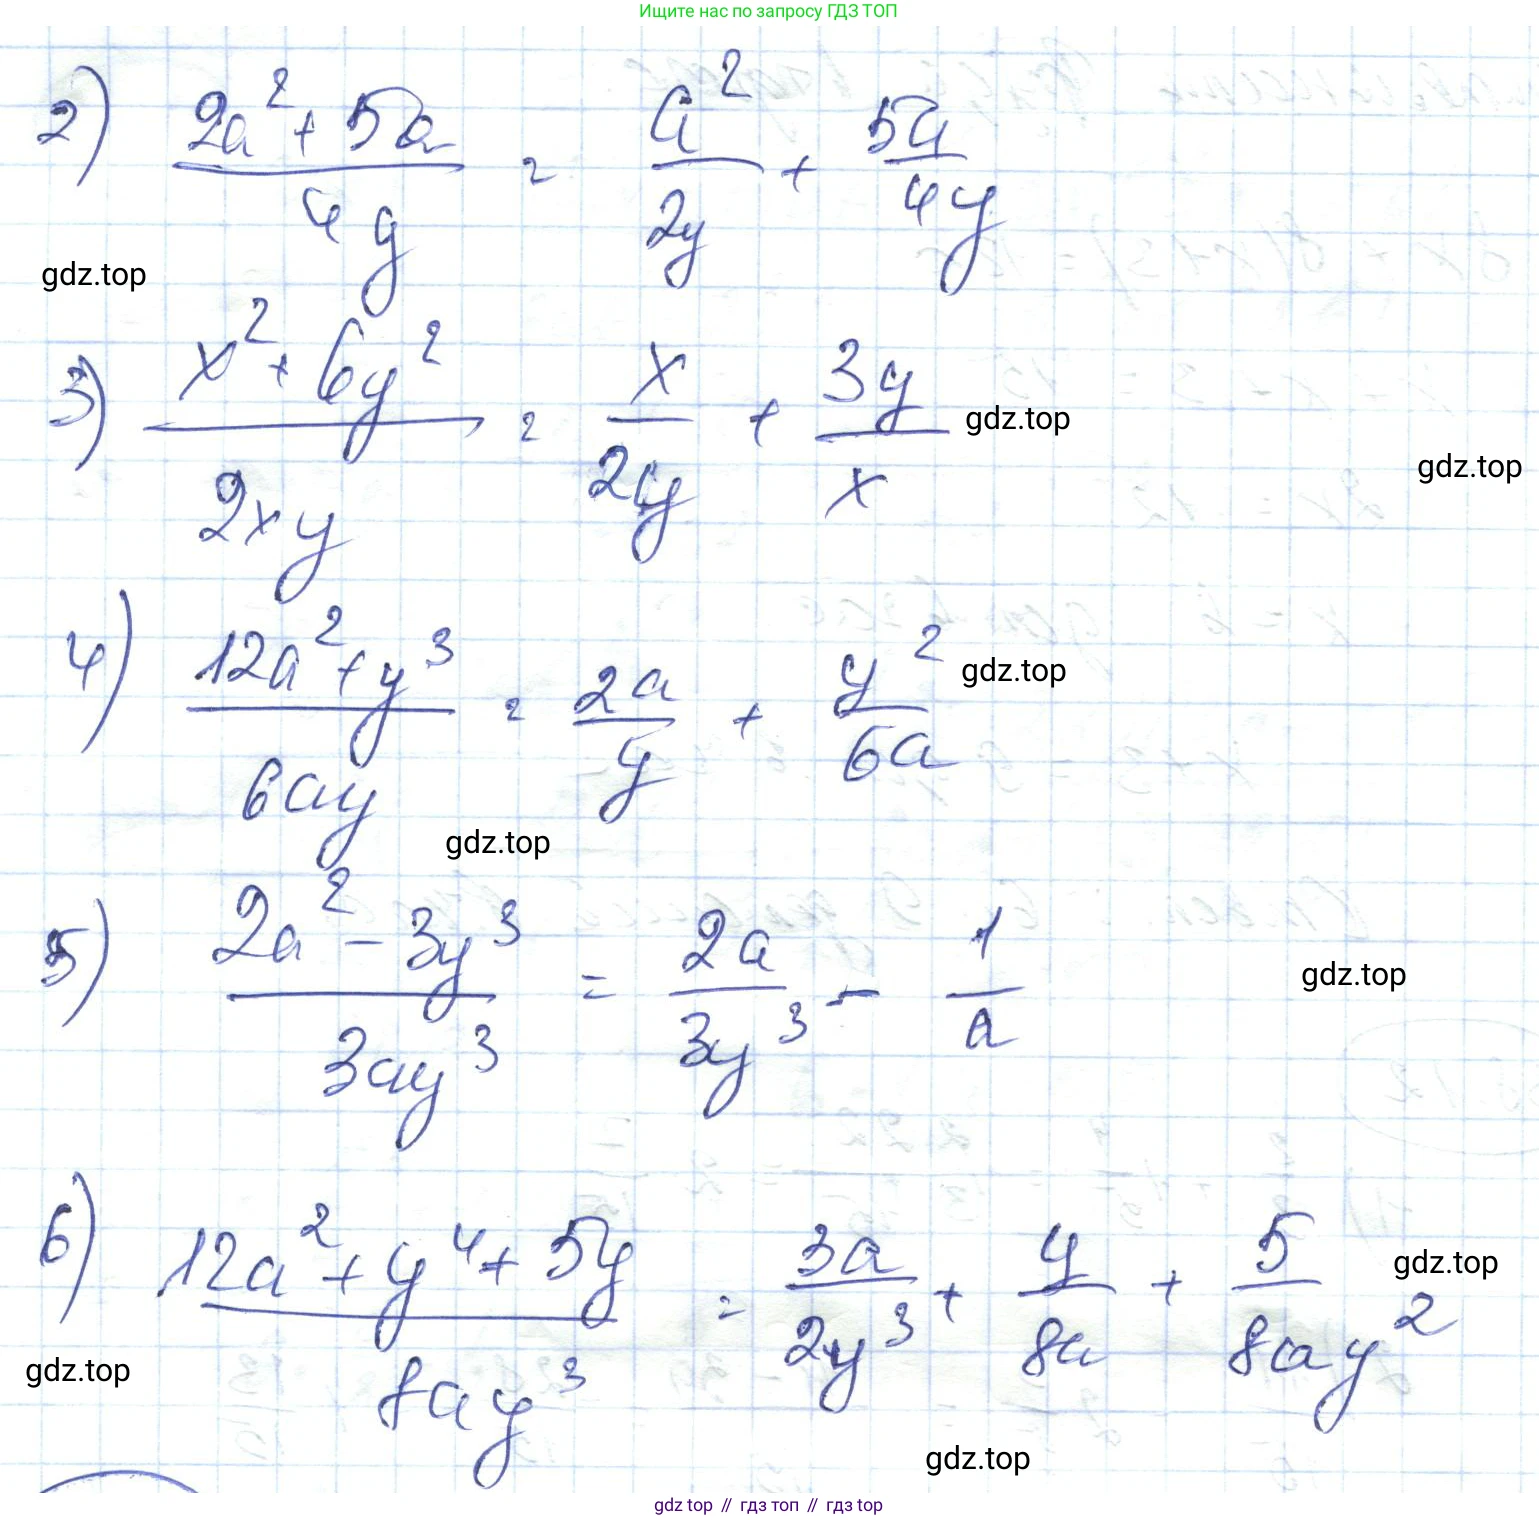 Ищите нас по запросу ГДЗ ТОП
2) (2a² + 5a)/(4y) = a²/(2y) + 5a/(4y)
gdz.top
3) (x² + 6y²)/(2xy) = x/(2y) + 3y/x
gdz.top
gdz.top
4) (12a² + y³)/(6ay) = 2a/y + y²/(6a)
gdz.top
gdz.top
5) (2a² - 3y³)/(3ay³) = 2a/(3y³) - 1/a
gdz.top
6) (12a² + y⁴ + 5y)/(8ay³) = 3a/(2y³) + y/(8a) + 5/(8ay²)
gdz.top
gdz.top
gdz.top
gdz top // гдз топ // гдз top